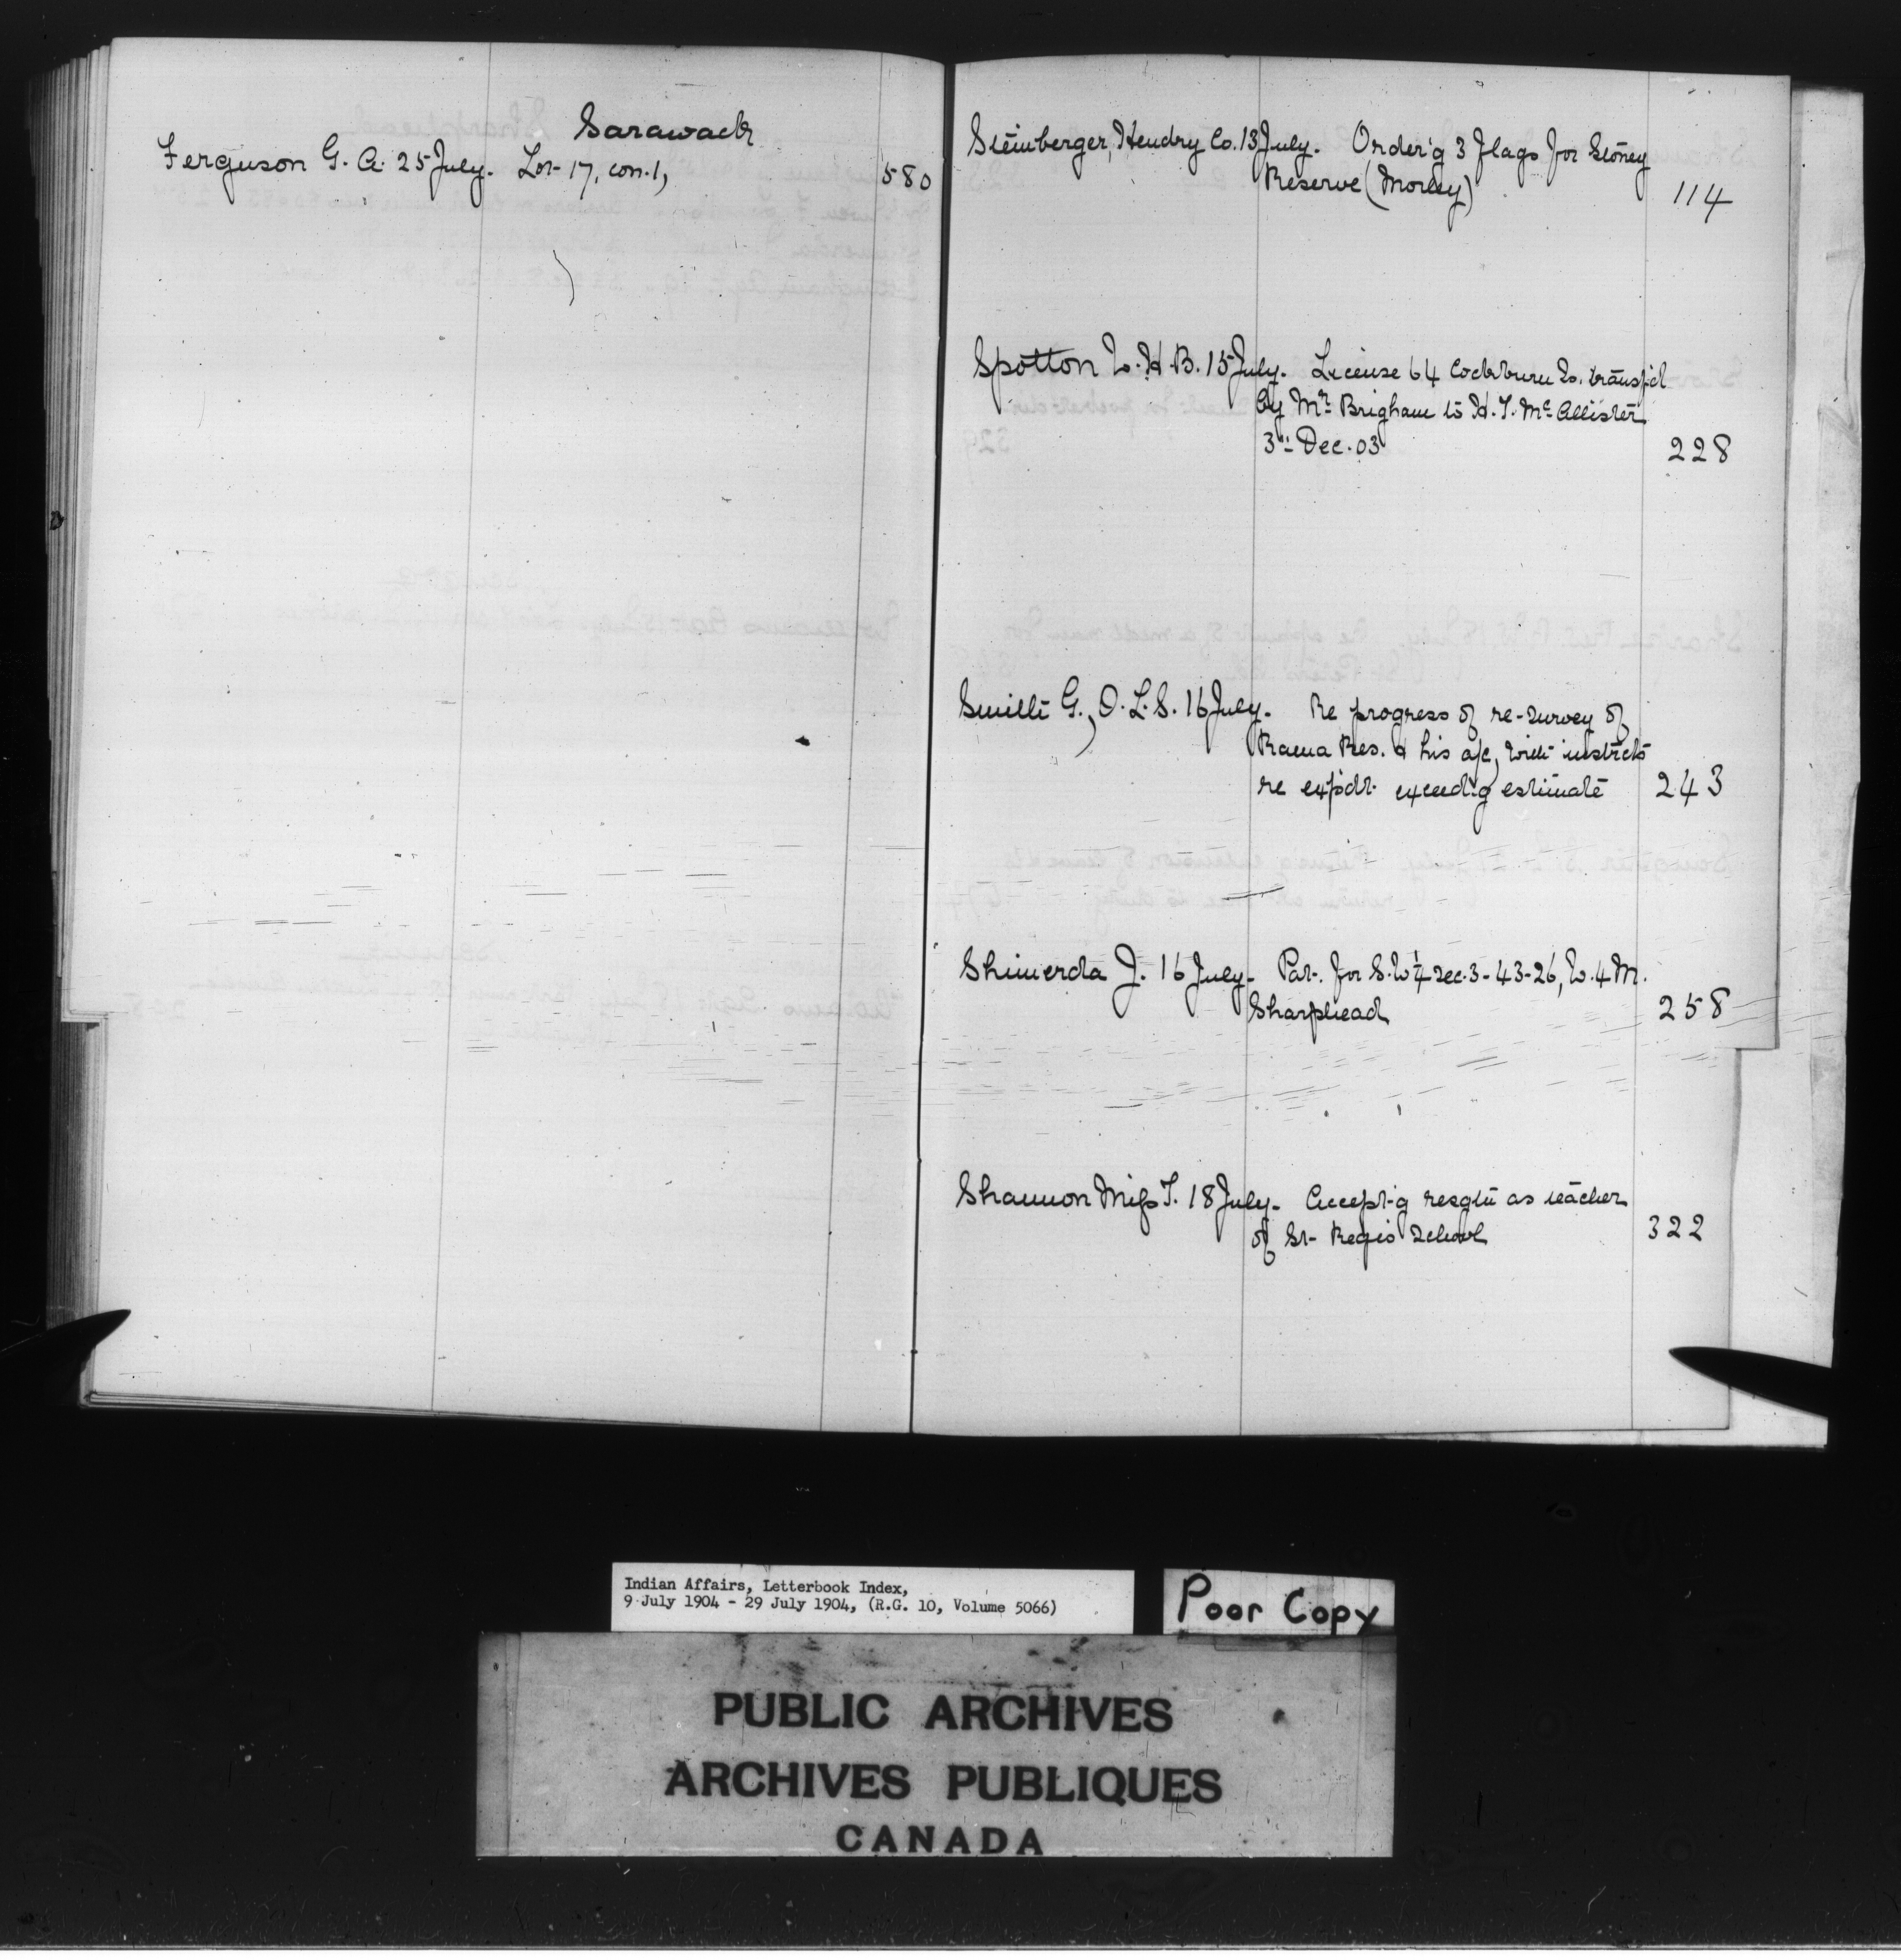 Sarawack
Ferguson G. A. 25 July. Lot 17, con. 1, 580
Steinberger, Hendry Co. 13 July. Order'g 3 flags for Stoney
Reserve (Morley) 114
Spotton W. H. B. 15 July. License 64 Cockburn Id. transf'd
by Mr. Brigham to H. T. McAllister
3rd Dec. 03 228
Smith G., O. L. S. 16 July. Re progress of re-survey of
Rama Res. & his a/c, with instructs
re expdt. exceed'g estimate 243
Shimerda J. 16 July. Pat. for S.W ¼ sec. 3-43-26, W. 4 M.
Sharphead 258
Shannon Miss T. 18 July. Accept'g resgtn as teacher
of St. Regis School 322
Indian Affairs, Letterbook Index,
9 July 1904 - 29 July 1904, (R.G. 10, Volume 5066)
Poor Copy
PUBLIC ARCHIVES
ARCHIVES PUBLIQUES
CANADA